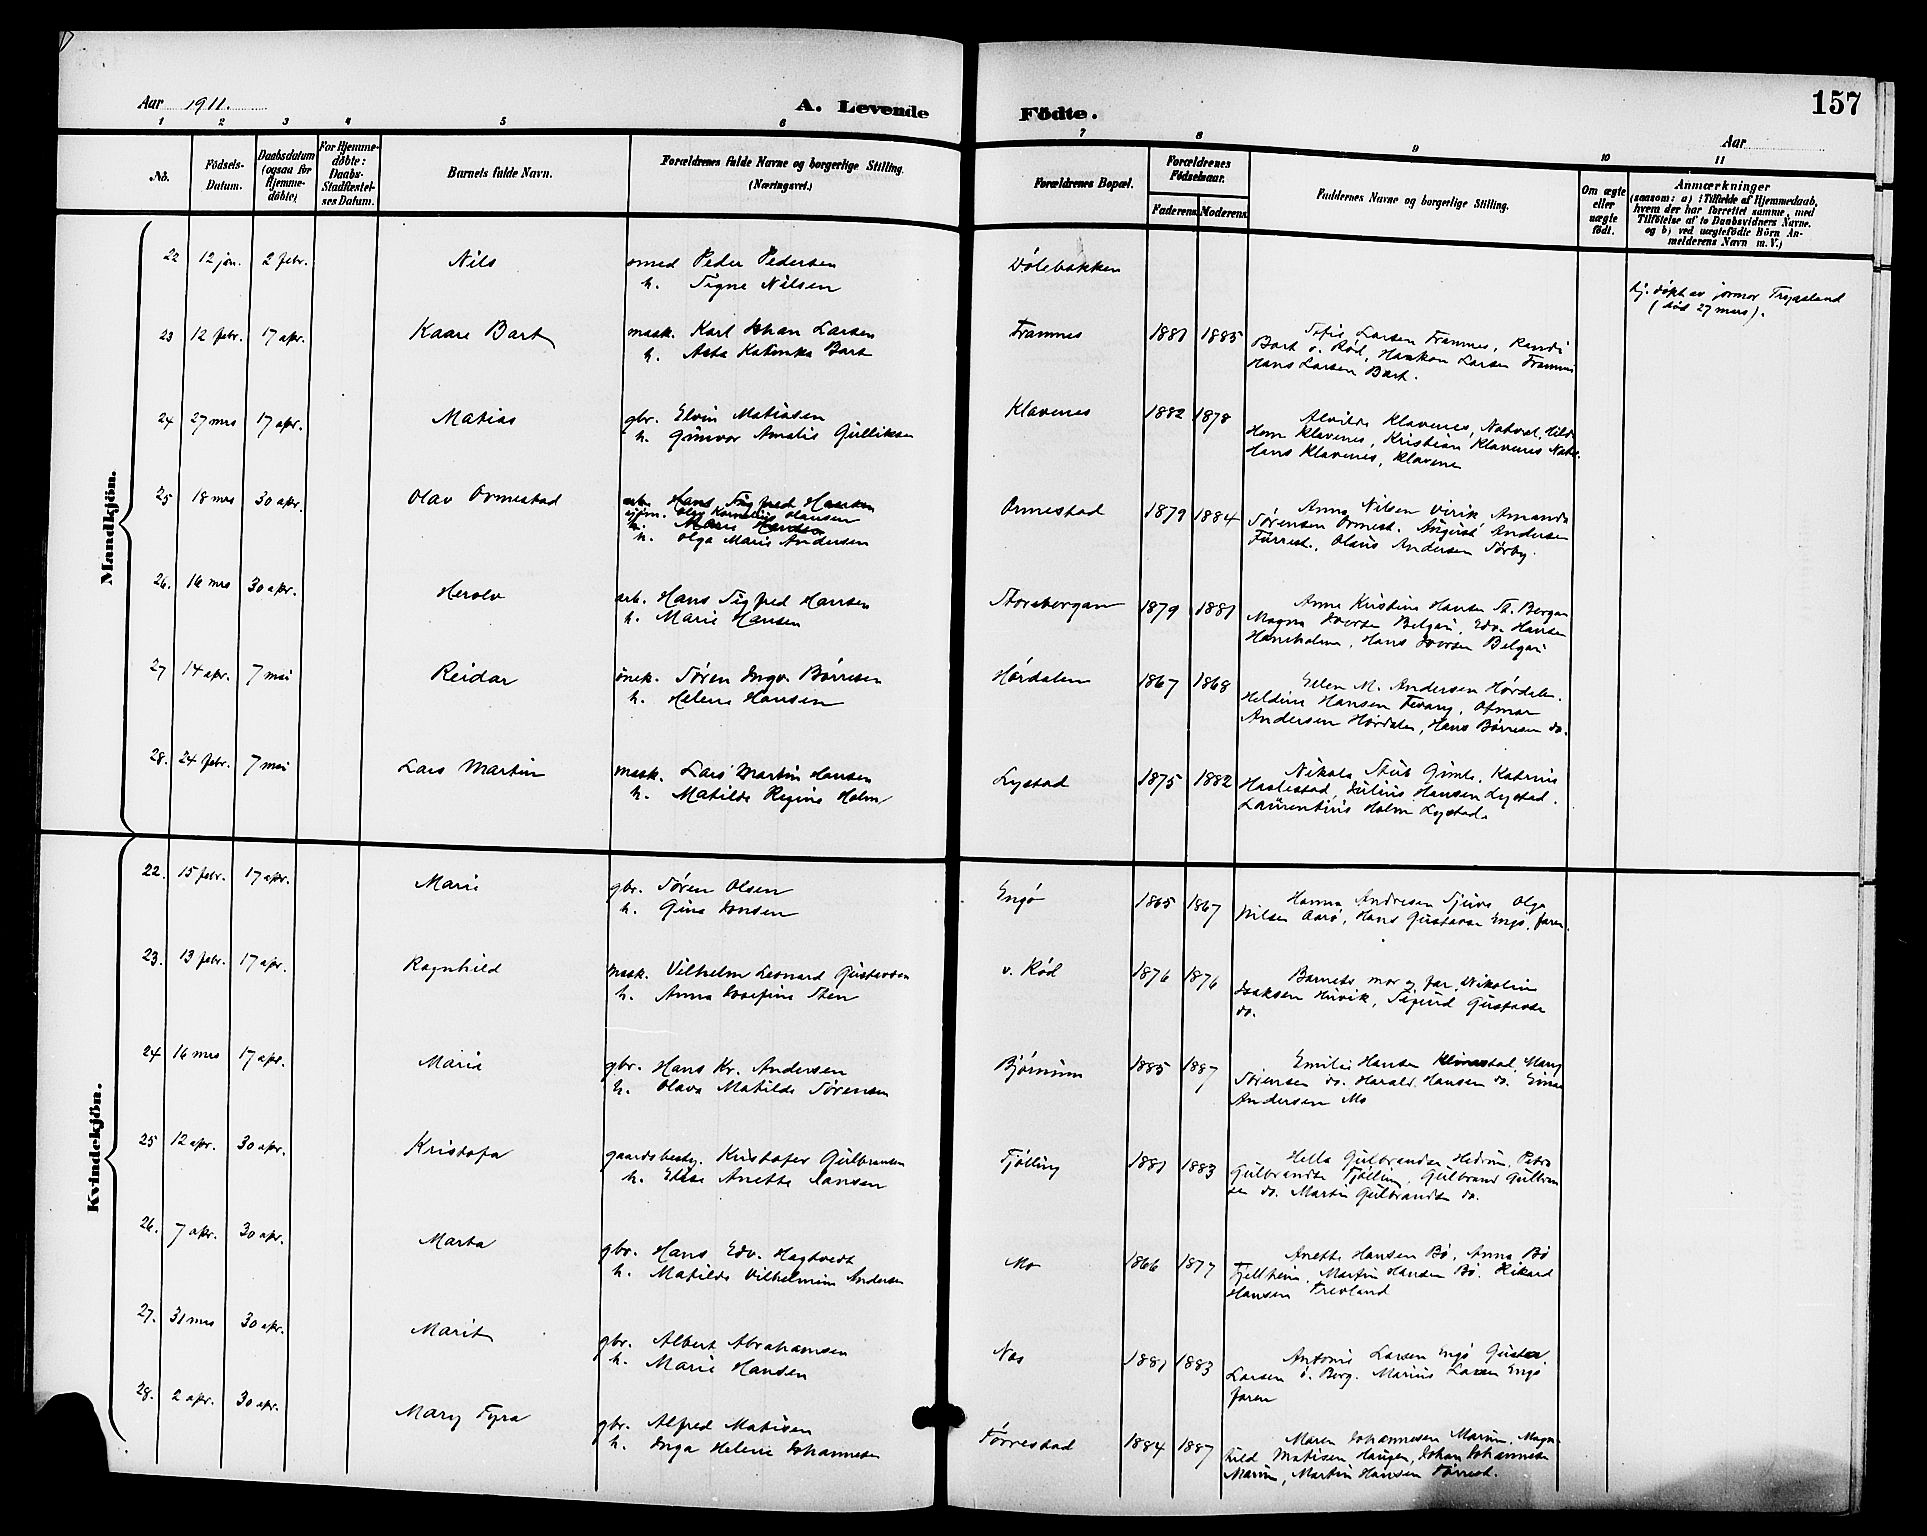 Aar 1911.
A. Levende Födte.
157
Aar
1 2 3 4 5 6 7 8 9 10 11
No.
Födsels-Datum.
Daabsdatum (ogsaa for Hjemme-döbte)
For Hjemme-döbte: Daabs-Stadfæstel-ses Datum.
Barnets fulde Navn.
Forældrenes fulde Navne og borgerlige Stilling.
(Næringsvei.)
Forældrenes Bopæl.
Forældrenes Födselsaar.
Faderens. Moderens.
Faddernes Navne og borgerlige Stilling.
Om ægte eller uægte födt.
Anmærkninger
(saasom: a) i Tilfælde af Hjemmedaab,
hvem der har forrettet samme, med
Tilföielse af to Daabsvidners Navne.
og b) ved uægtefödte Börn An-
melderens Navn m. V.)
Mandkjön.
22 12 jan. 2 febr. Nils smed Peder Pedersen Dølebakken
h. Signe Nilsen
hj. døpt av jormor Trygseland
(død 27 mars).
23 12 febr. 17 apr. Kaare Bart mask. Karl Johan Larsen Framnes 1881 1885 Sofie Larsen Framnes, Randi
h. Asta Katinka Bart Bart ö. Rød, Haakon Larsen Framnes
Hans Larsen Bart.
24 27 mrs 17 apr. Matias gbr. Elvin Matiasen Klavenes 1882 1878 Alvilde Klavenes, Natvel, Hilda
h. Gunvor Amalie Gulliksen Hem Klavenes, Kristian Klavenes Natv.
Hans Klavenes, Klavenes
25 18 mrs 30 apr. Olav Ormestad arb. Hans Sigfred Hansen Ormestad 1879 1884 Anna Nilsen Virik Amanda
sjøm. Olav Kornelius Hansen Sørensen Ormest. August Andersen
h. Marie Hansen Furrest., Olaus Andersen Sørby.
h. Olga Marie Andersen
26. 16 mrs 30 apr. Herolv arb. Hans Sigfred Hansen Storebergan 1879 1881 Anna Kristine Hansen St. Bergan
h. Marie Hansen Magna Iversen Belgau, Edv. Hansen
Haneholmen, Hans Iversen Belgau
27 14 apr. 7 mai Reidar snek. Søren Ingv. Børresen Hørdalen 1867 1868 Ellen M. Andersen Hørdalen.
h. Helene Hansen Heldine Hansen Fevang, Otmar
Andersen Hørdalen, Hans Børresen do.
28. 24 febr. 7 mai Lars Martin mask. Lars Martin Hansen Lystad 1875 1882 Nikola Stub Gimle, Katrine
h. Matilde Regine Holm Haslestad, Julius Hansen Lystad.
Laurentius Holm Lystad.
Kvindekjön.
22. 15 febr. 17 apr. Marie gbr. Søren Olsen Engø 1865 1867 Hanna Andresen Tjuve Olga
h. Gina Jonsen Nilsen Aarø, Hans Gustavse Engø, faren.
23. 13 febr. 17 apr. Ragnhild mask. Vilhelm Leonard Gustavsen v. Rød 1876 1876 Barnets mor og far, Nikoline
h. Anna Josefine Sten Isaksen Huvik, Sigurd Gustavse
do.
24 16 mrs 17 apr. Marie gbr. Hans Kr. Andersen Bjørnum 1885 1887 Emilie Hansen Klinestad, Mary
h. Olava Matilde Sørensen Sørensen do. Harald Hansen do. Einar
Andersen Mo
25 12 apr. 30 apr. Kristofa gaardsbesty. Kristofer Gulbransen Tjølling 1881 1883 Hella Gulbrandse Hedrum, Petra
h. Elise Anette Jansen Gulbrandse Tjølling, Gulbrand Gulbran
sen do. Martin Gulbrandse do.
26. 7 apr. 30 apr. Marta gbr. Hans Edv. Hagtvedt Mo 1866 1877 Anette Hansen Bø, Anna Bø
h. Matilde Vilhelmine Andersen Fjellheim, Martin Hansen Bø. Rikard
Hansen Trevland
27. 31 mrs 30 apr. Marit gbr. Albert Abrahamsen Nes 1881 1883 Antonie Larsen Engø Gustav
h. Marie Hansen Larsen ö. Berg. Marius Larsen Engø
faren
28. 2 apr. 30 apr. Mary Fyra gbr. Alfred Matisen Førrestad 1884 1887 Maren Johannesen Marum, Magn
h. Inga Helene Johannesen hild Matisen Haugen, Johan Johannesen
Marum, Martin Hansen Førrest.